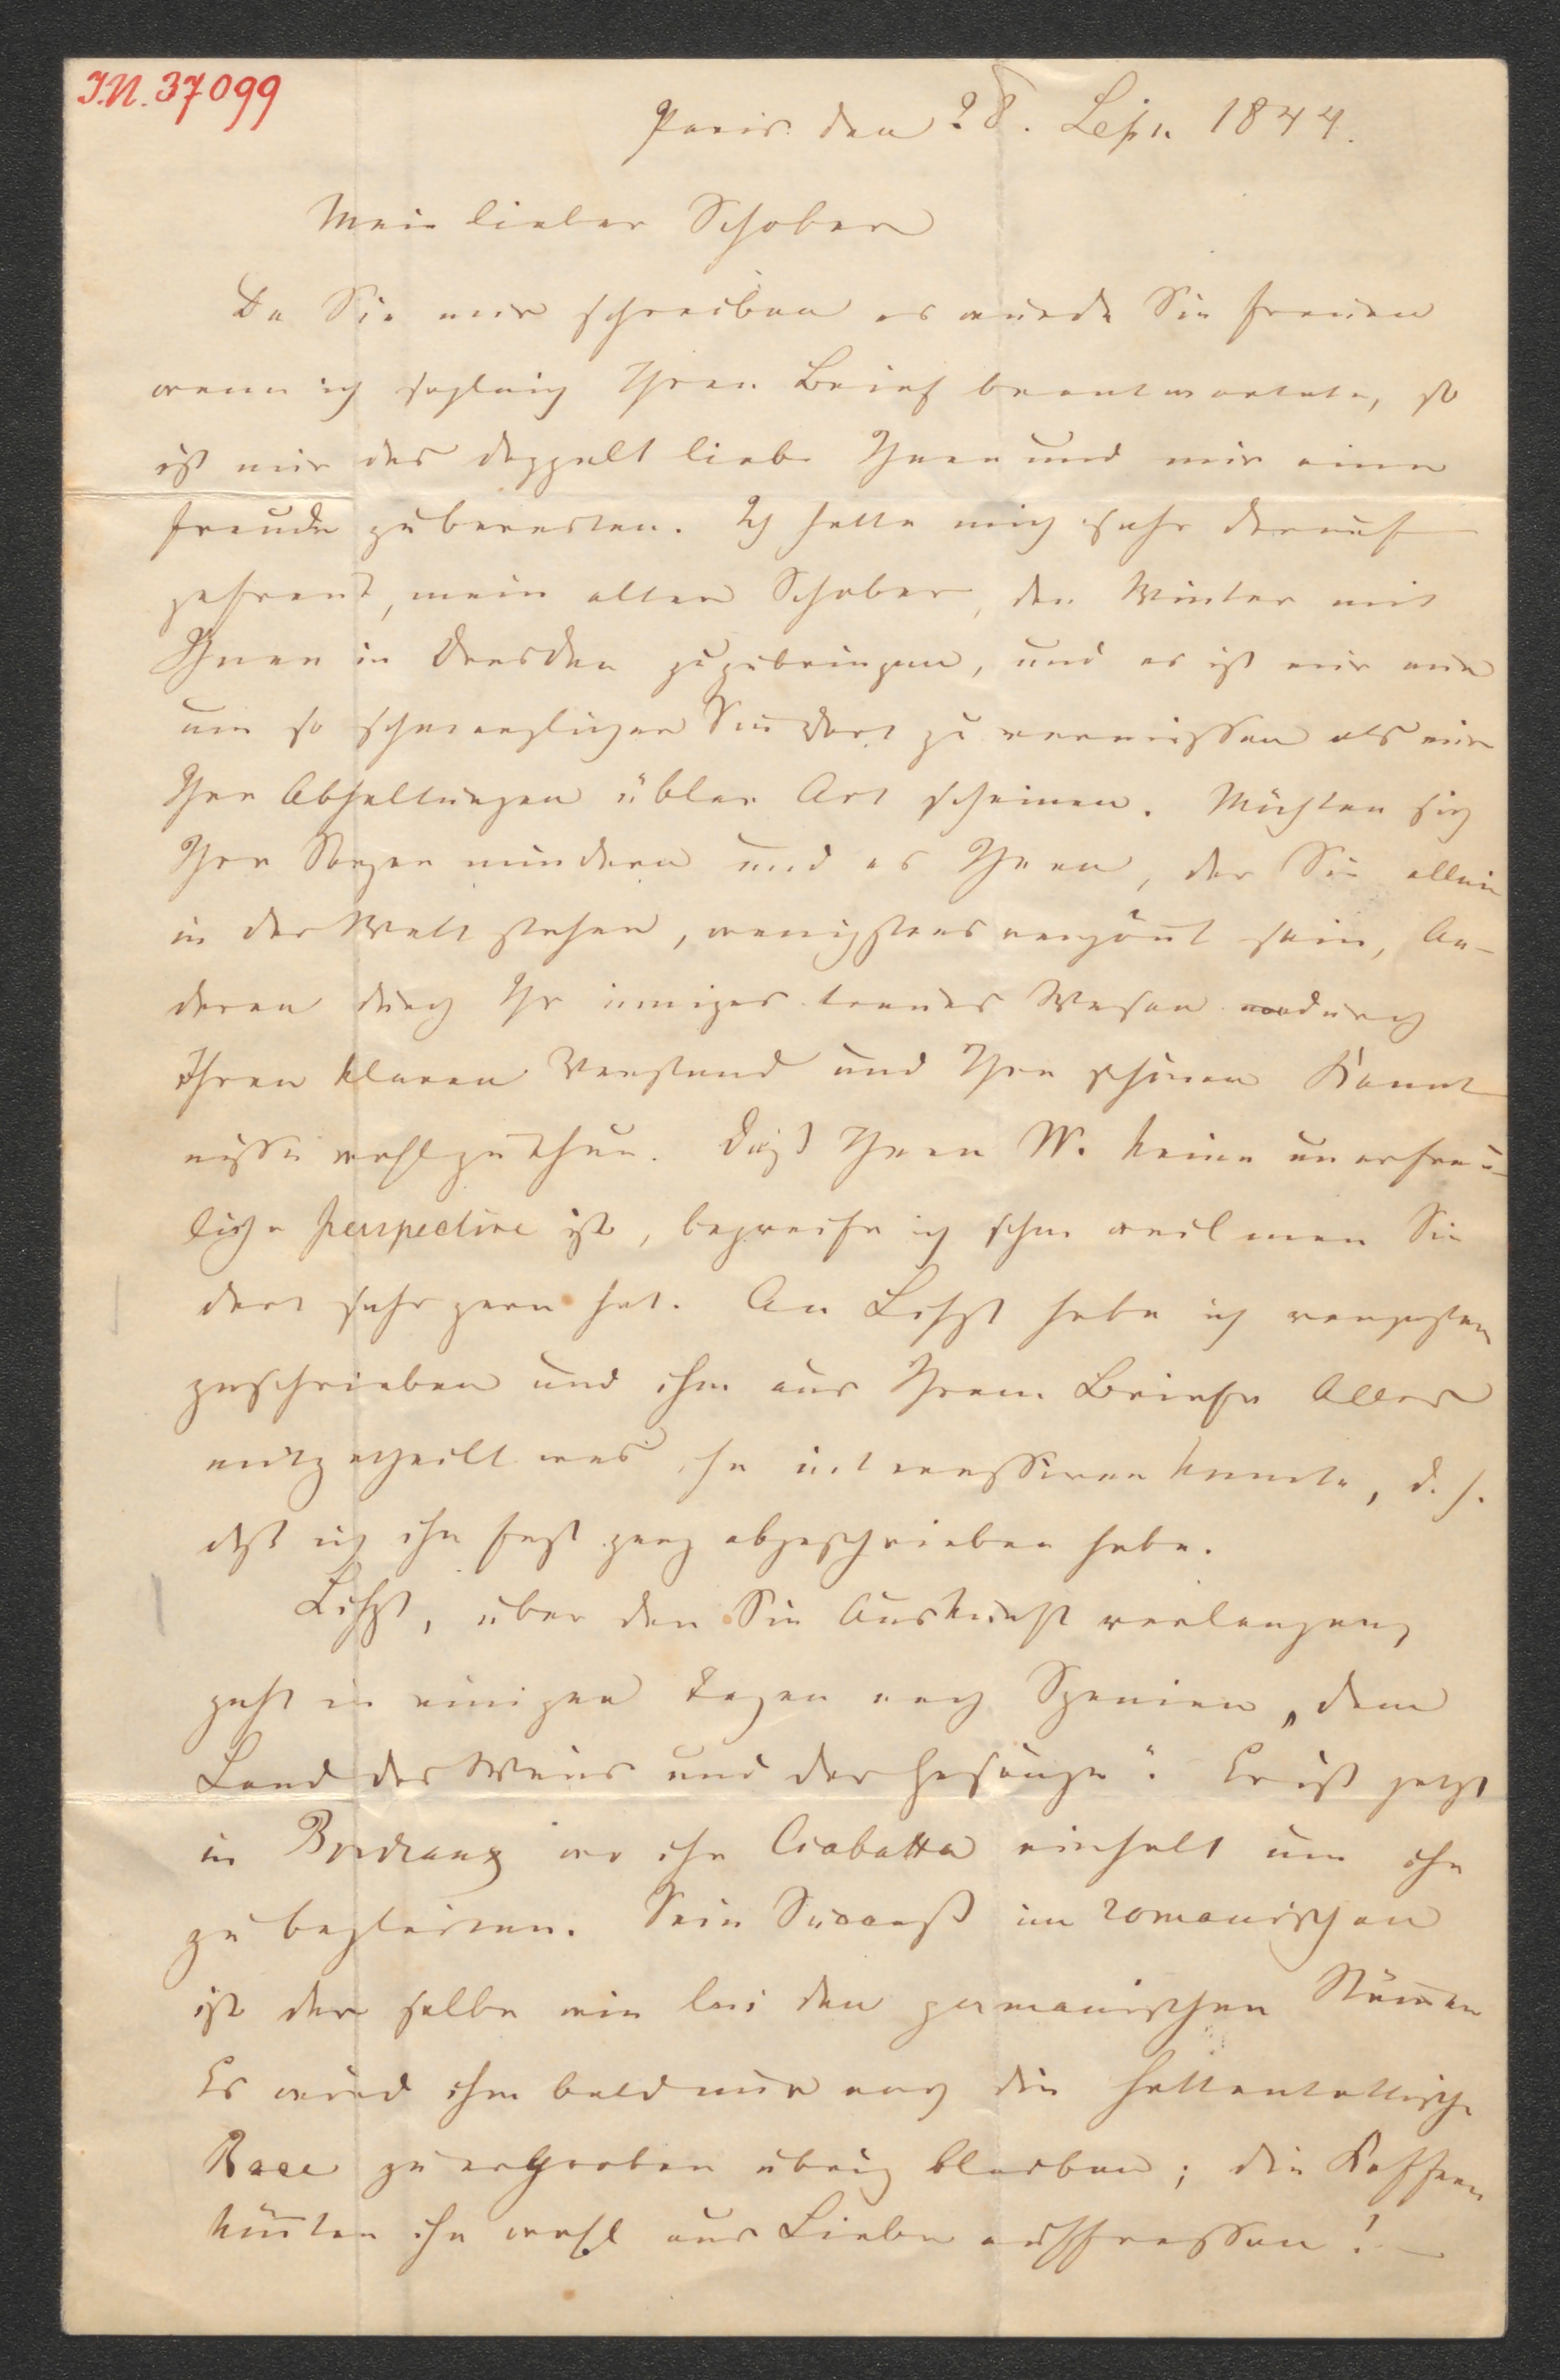 I.N. 37099
Paris den 28. Sept. 1844.
Mein lieber Schober
Da Sie mir schreiben es würde Sie freuen
wenn ich sogleich Ihren Brief beantwortete, so
ist mir das doppelt liebe Ihnen und mir eine
Freude zubereiten. Ich hatte mich sehr darauf
gefreut, mein alter Schober, den Winter mit
Ihnen in Dresden zuzubringen, und es ist mir nun
um so schmerzlicher Sie dort zu vermissen als mir
Ihre Abhaltungen übler Art scheinen. Möchten sich
Ihre Sorgen mindern und es Ihnen, der Sie allein
in der Welt stehen, wenigstens vergönt sein, An-
deren durch Ihr inniges treues Wesen durch
Ihren klaren Verstand und Ihre schönen Kennt
nisse wohlzuthun. Daß Ihnen W. keine unerfreu-
liche perspective ist, begreife ich schon weil man Sie
dort sehr gern hat. An Liszt habe ich vorgestern
geschrieben und ihm aus Ihrem Briefe Alles
mitgetheilt was ihn interessiren konnte, d. h.
daß ich ihn fast ganz abgeschrieben habe.
Liszt, über den Sie Auskunft verlangen,
geht in einigen Tagen nach Spanien „dem
Land des Weins und der Gesänge". Er ist jetzt
in Bordeaux wo ihn Ciabatta einholt um ihn
zu begleiten. Sein Success im romanischen
ist der selbe wie bei den germanischen Stämen
Es wird ihm bald nur noch die hottentottische
Race zu erobern übrig bleiben; die Kaffern
könten ihn wohl aus Liebe auffressen! —